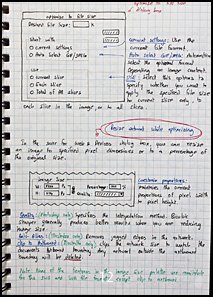 optimize to file size
Desired File Size: K
Start with
Current settings
Auto Select GIF/JPEG
Use
Current Slice
Each Slice
Total of All Slices
dialog box
Current settings: Use the current file format.
Auto Select GIF/JPEG: Automatically select the optimal format depending on image content.
Use: Select this options to specify whether you want to apply the specified file size to current slice only, to
each slice in the image or to all slices
Resize artwork while optimizing
In the Save for Web & Devices dialog box, you can resize
an image to specified pixel dimensions or to a percentage of
the original size.
Image Size
W: Px Percentage: %
H: Px Quality:
Constrain proportions:
Maintains the current
proportions of pixel width
to pixel height.
Quality: (Photoshop only) Specifies the interpolation method. Bicubic
Sharper generally produces better results when you are reducing
image size.
(Illustrator only) Removes jagged edges in the artwork.
Clip to Artboard: (Illustrator only) Clips the artwork size to match the
document's Artboard boundary. Any artwork outside the Artboard
boundary will be deleted.
Note: None of the features in the Image Size palette are available